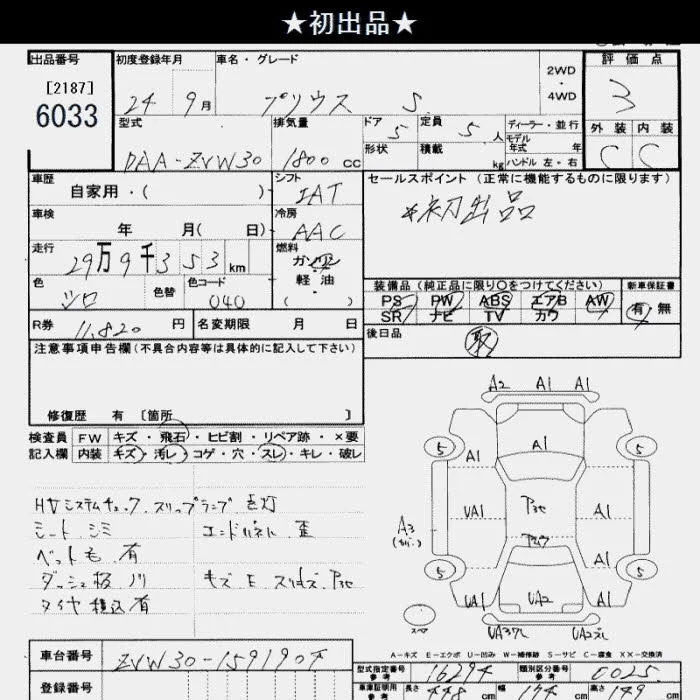 ★初出品★
出品番号
[2187]
6033
初度登録年月
24 9月
車名・グレード
プリウス S
2WD
・
4WD
評価点
3
外装 内装
C C
型式
DAA-ZVW30
排気量
1800 cc
ドア
5
定員
5 人
形状
積載
kg
ディーラー・並行
モデル
年式 年
ハンドル 左・右
車歴
自家用・( )
シフト
IAT
セールスポイント (正常に機能するものに限ります)
*初出品
車検
年 月( 日)
冷房
AAC
走行
29万9千353km
燃料
ガソリン
・
軽油
( )
色
シロ
色替
色コード
040
装備品 (純正品に限り○をつけてください)
新車保証書
PS PW ABS エアB AW
SR ナビ TV カワ
有 無
R券
11,820 円
名変期限 月 日
後日品
取
注意事項申告欄(不具合内容等は具体的に記入して下さい)
修復歴 有 [箇所 ]
検査員
記入欄
FW キズ・飛石・ヒビ割・リペア跡・×要
内装 キズ・汚レ・コゲ・穴・スレ・キレ・破レ
HVシステムチェック、スリップランプ 点灯
シート シミ
エンドパネル 歪
ペット毛 有
ダッシュ板 ハリ
キズ E スリキズ
タイヤ積込有
A2 A1 A1
5 5
A1 A1
UA1 A1
A3
(カバー)
5 A1 5
UA1 UA2 A1
スペア
A-キズ E-エクボ U-凹み W-補修跡 S-サビ C-腐食 XX-交換済
車台番号
ZVW30-1591907
登録番号
型式指定番号
参考
16294
類別区分番号
参考
0025
車庫証明用
参考
長さ 448 cm 幅 174 cm 高さ 149 cm